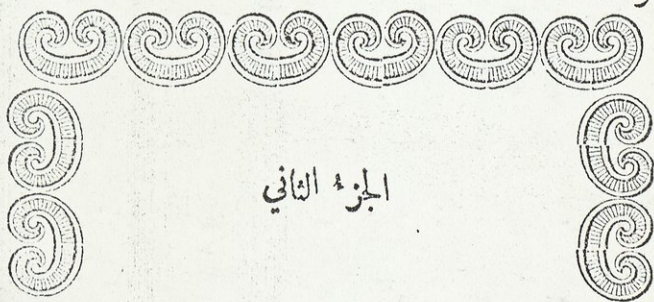 الجزء الثاني